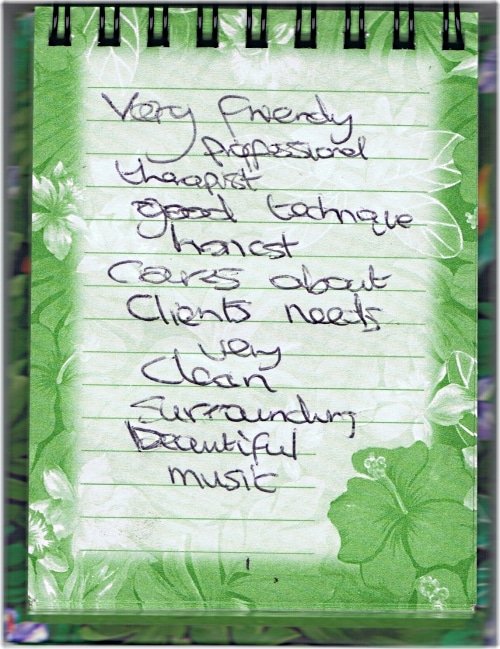 Very friendly
proffessional
therapist
good technique
honest
Cares about
Clients needs
very
Clean
Surrounding
beautiful
music